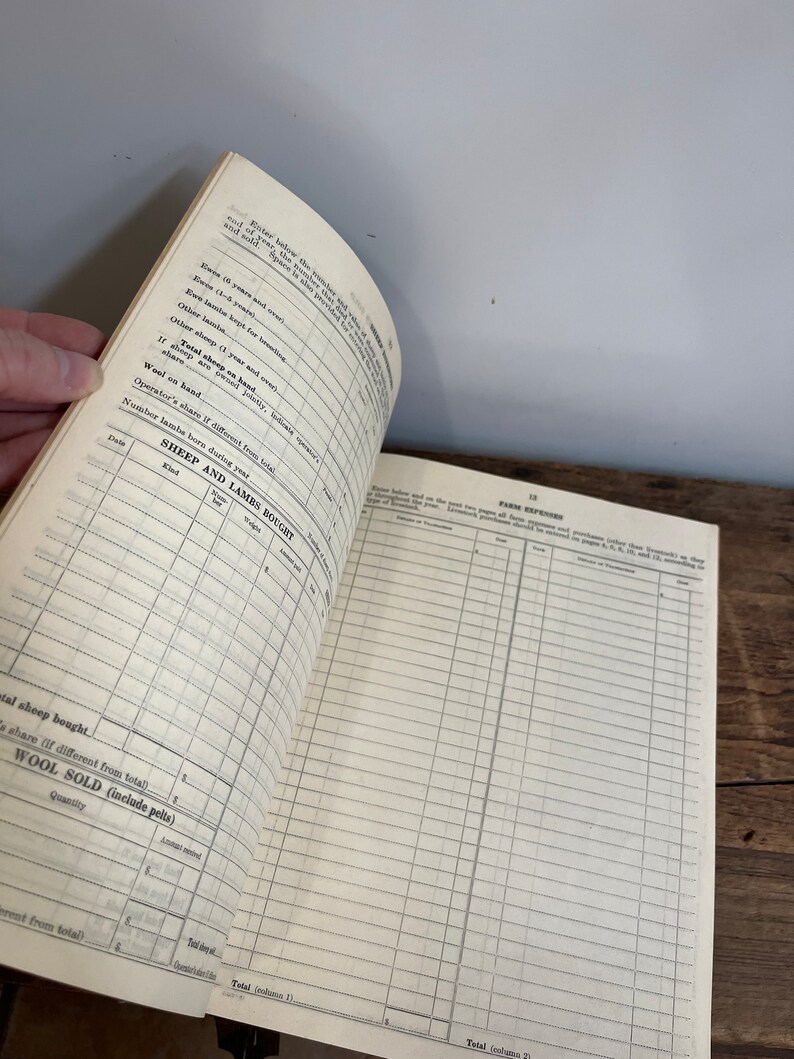 Enter below the number and value of
end of year, the number that died or were
and sold. Space is also provided for entering the
Ewes (6 years and over)
Ewes (1–5 years)
Ewe lambs kept for breeding
Other lambs
Other sheep (1 year and over)
Total sheep on hand
If sheep are owned jointly, indicate operator's
share
Wool on hand
Operator's share if different from total
Number lambs born during year
Number of
SHEEP AND LAMBS BOUGHT
Date
Kind
Num-
ber
Weight
Amount paid
$
Date
tal sheep bought
's share (if different from total)
$
$
WOOL SOLD (include pelts)
Quantity
Amount received
$
$
ferent from total)
$
Total sheep sold
Operator's share (if
13
FARM EXPENSES
Enter below and on the next two pages all farm expenses and purchases (other than livestock) as they
throughout the year. Livestock purchases should be entered on pages 4, 6, 8, 10, and 12, according to
type of livestock.
Details of Transaction
Cost
Date
Details of Transaction
Cost
$
$
Total (column 1)
$
Total (column 2)